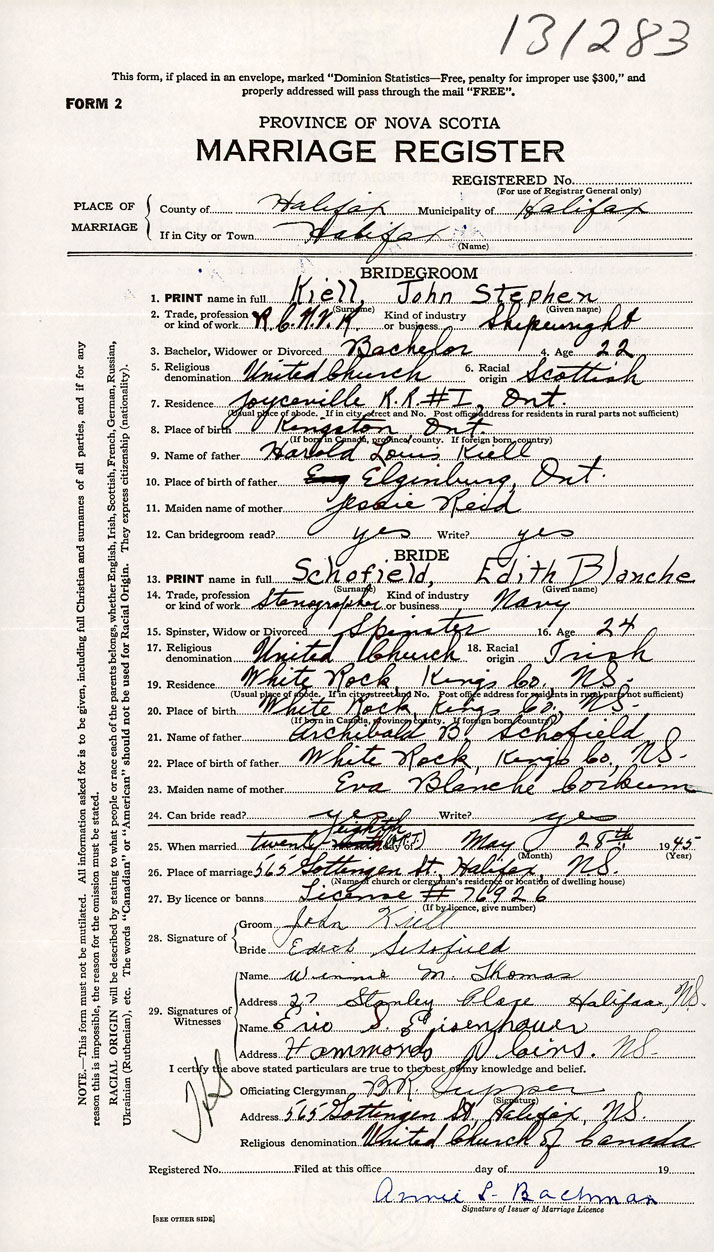 131283
This form, if placed in an envelope, marked "Dominion Statistics—Free, penalty for improper use $300," and
properly addressed will pass through the mail "FREE".
FORM 2
PROVINCE OF NOVA SCOTIA
MARRIAGE REGISTER
REGISTERED No.
(For use of Registrar General only)
PLACE OF MARRIAGE
County of Halifax Municipality of Halifax
If in City or Town Halifax
(Name)
BRIDEGROOM
1. PRINT name in full Kiell, John Stephen
(Surname) (Given name)
2. Trade, profession or kind of work R.C.N.V.R. Kind of industry or business Shipwright
3. Bachelor, Widower or Divorced Bachelor 4. Age 22
5. Religious denomination United Church 6. Racial origin Scottish
7. Residence Joyceville R.R. #1, Ont.
(Usual place of abode. If in city street and No. Post office address for residents in rural parts not sufficient)
8. Place of birth Kingston, Ont.
(If born in Canada, province, county. If foreign born, country)
9. Name of father Harold Louis Kiell
10. Place of birth of father Elginburg, Ont.
11. Maiden name of mother Jessie Reid
12. Can bridegroom read? yes Write? yes
BRIDE
13. PRINT name in full Schofield, Edith Blanche
(Surname) (Given name)
14. Trade, profession or kind of work Stenographer Kind of industry or business Navy
15. Spinster, Widow or Divorced Spinster 16. Age 24
17. Religious denomination United Church 18. Racial origin Irish
19. Residence White Rock, Kings Co., N.S.
(Usual place of abode. If in city street and No. Post office address for residents in rural parts not sufficient)
20. Place of birth White Rock, Kings Co., N.S.
(If born in Canada, province, county. If foreign born, country)
21. Name of father Archibald B. Schofield
22. Place of birth of father White Rock, Kings Co., N.S.
23. Maiden name of mother Eva Blanche Corkum
24. Can bride read? yes Write? yes
25. When married twenty eighth May 28th 1945
(Month) (Year)
26. Place of marriage 565 Gottingen St. Halifax, N.S.
(Name of church or clergyman's residence or location of dwelling house)
27. By licence or banns License # 76926
(If by licence, give number)
28. Signature of
Groom John Kiell
Bride Edith Schofield
29. Signatures of Witnesses
Name Winnie M. Thomas
Address 27 Stanley Place Halifax, N.S.
Name Eric S. Eisenhauer
Address Hammonds Plains. N.S.
I certify the above stated particulars are true to the best of my knowledge and belief.
Officiating Clergyman
(Signature)
Address 565 Gottingen St. Halifax, N.S.
Religious denomination United Church of Canada
Registered No. Filed at this office day of 19
Annie L. Bachman
Signature of Issuer of Marriage Licence
[SEE OTHER SIDE]
NOTE.—This form must not be mutilated. All information asked for is to be given, including full Christian and surnames of all parties, and if for any
reason this is impossible, the reason for the omission must be stated.
RACIAL ORIGIN will be described by stating to what people or race each of the parents belongs, whether English, Irish, Scottish, French, German, Russian,
Ukrainian (Ruthenian), etc. The words "Canadian" or "American" should not be used for Racial Origin. They express citizenship (nationality).